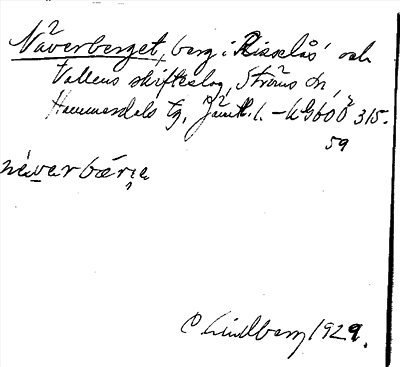 Näverberget, berg i Risselås och
Vallens skifteslag, Ströms sn,
Hammerdals tg, Jämtl. l. – LG600² 315.
59
näverbärje
C Lindberg 1929.